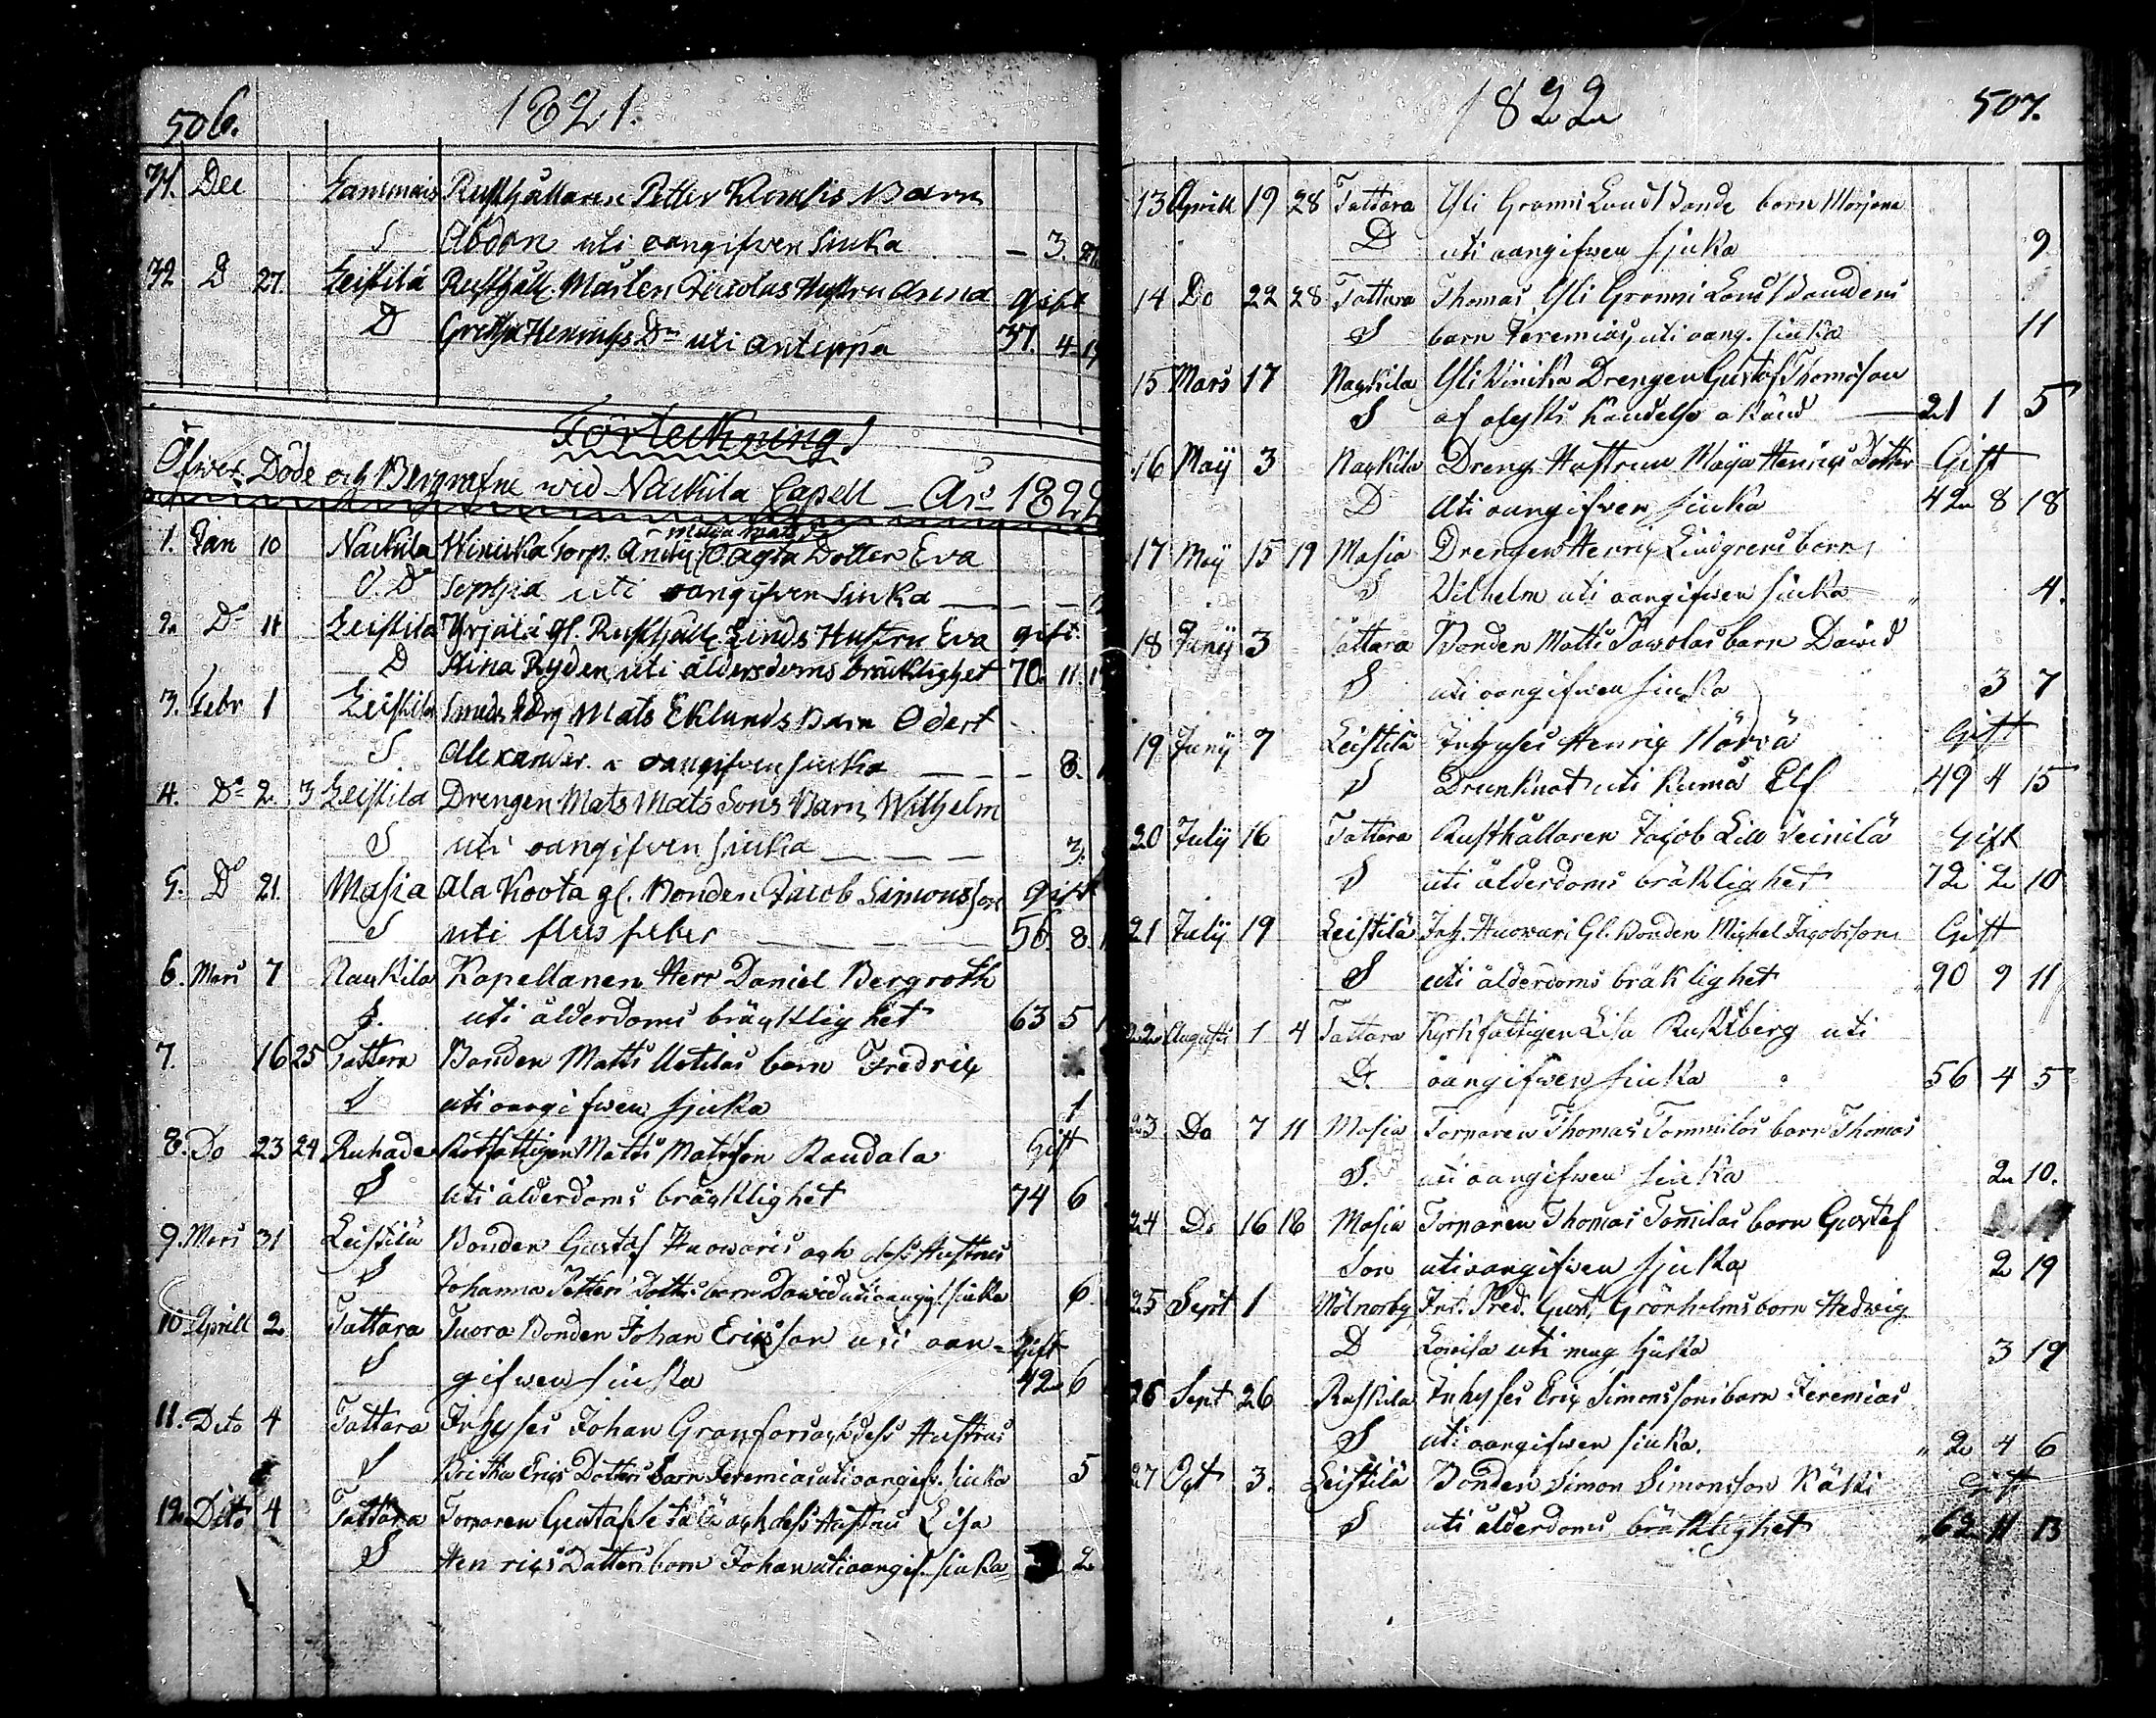 506. 1821.
31. Dec Lammais Rusthållaren Petter Klomsis Barn
S Abdon uti oangifwen siuka — 3.
32 D 27. Leistilä Rusthåll. Mårten Hustru Anna gift
D Gretha Henricss Dr uti 37. 4
Förteckning
Öfwer Döde och Begrafne wid Nackila Capell År 182
1. Jan 10 Nackila Winicka Torp. Dotter Eva
O. D. Sophia uti oangifven siuka
2. Do 11 Leistila Yrjälä gl. Rusthåll. Linds Hustru Eva gift.
D Stina Ryden, uti ålderdoms bräcklighet 70. 11.
3. Febr 1 Leistila Mats Eklunds Barn Odert
S Alexander oangifven siuka 8.
4. Do 2. 3 Leistila Drengen Mats Mats Sons Barn, Wilhelm
S uti oangifven siuka 3.
5. Do 21. Masia Ala Kovta gl. Bonden Jacob Simonsson gift
S uti flus feber 56. 8
6. Mars 7 Nackila Kapellanen Herr Daniel Bergroth
S. uti ålderdoms bräcklighet 63 5
7. 16 25 Tattara Bonden Matts Uotilas barn Fredric
S uti oangifwen sjuka 1
8. Do 23 24 Ruhade Rotfattigen Matts Matsson Raudala Gift
S uti ålderdoms bräcklighet 74 6
9. Mars 31 Leistilä Bonden Gustaf Huowaris och dess Hustrus
S Johanna Petters Dotters barn Dawid uti oangif. siuka 6
10 Aprill 2 Tattara Juora Bonden Johan Ericsson uti oan- Gift
S gifwen siuka 42 6
11. Dito 4 Tattara Inhyses Johan Granfors och dess Hustrus
S Britha Erics Dotters barn Jeremias uti oangif. siuka 5
12. Dito 4 Tattara Torparen Gustaf och dess Hustrus Lisa
S Henrics Dotters barn Johan uti oangif. siuka 2
1822 507.
13 Aprill 19 28 Tattara Yli Granni barn Marjana
D uti oangifwen sjuka 9
14 Do 22 28 Tattara Thomas Yli Granni
S barn Jeremias, uti oang. siuka 11
15 Mars 17 Nackila Yli Winika Drengen Gustaf Thomsson
S af olyks händelse 21 1 5
16 Maij 3 Nackila Dreng Hustrun Maja Henrics Dotter Gift
D Uti oangifwen siuka 42 8 18
17 Maij 15 19 Masia Drengen Henric Lindgrens barn
S Vilhelm uti oangifwen siuka 4.
18 Junij 3 Tattara Bonden Matts Pawolas barn Dawid
S uti oangifwen siuka 3 7
19 Junij 7 Leistilä Inhyses Henric Norrä Gift
S Drunknat uti Kumå Elf 49 4 15
20 Julij 16 Tattara Rusthållaren Jacob Liw Seinilä Gift
S uti ålderdoms bräklighet 72 2 10
21 Julij 19 Leistilä Huowari Gl. Bonden Michel Jacobsson Gift
S uti ålderdoms bräklighet 90 9 11
22 Augusti 1 4 Tattara Kyrkfattigen Lisa Ruskberg uti
D. oangifwen siuka 56 4 5
23 Do 7 11 Masia Torparen Thomas Tommilas barn Thomas
S. uti oangifwen siuka 2 10.
24 Do 16 18 Masia Torparen Thomas Tomilas barn Gustaf
Son uti oangifwen sjuka 2 19
25 Sept 1 Pred. Gust. Grönholms barn Hedwig
D Lovisa uti mag sjuka 3 19
26 Sept 26 Ruskila Inhyses Eric Simonssons barn Jeremias
S uti oangifwen siuka. 2 4 6
27 Oct 3. Leistilä Bonden Simon Simonsson Käki Gift
S uti ålderdoms bräklighet 62 11 13